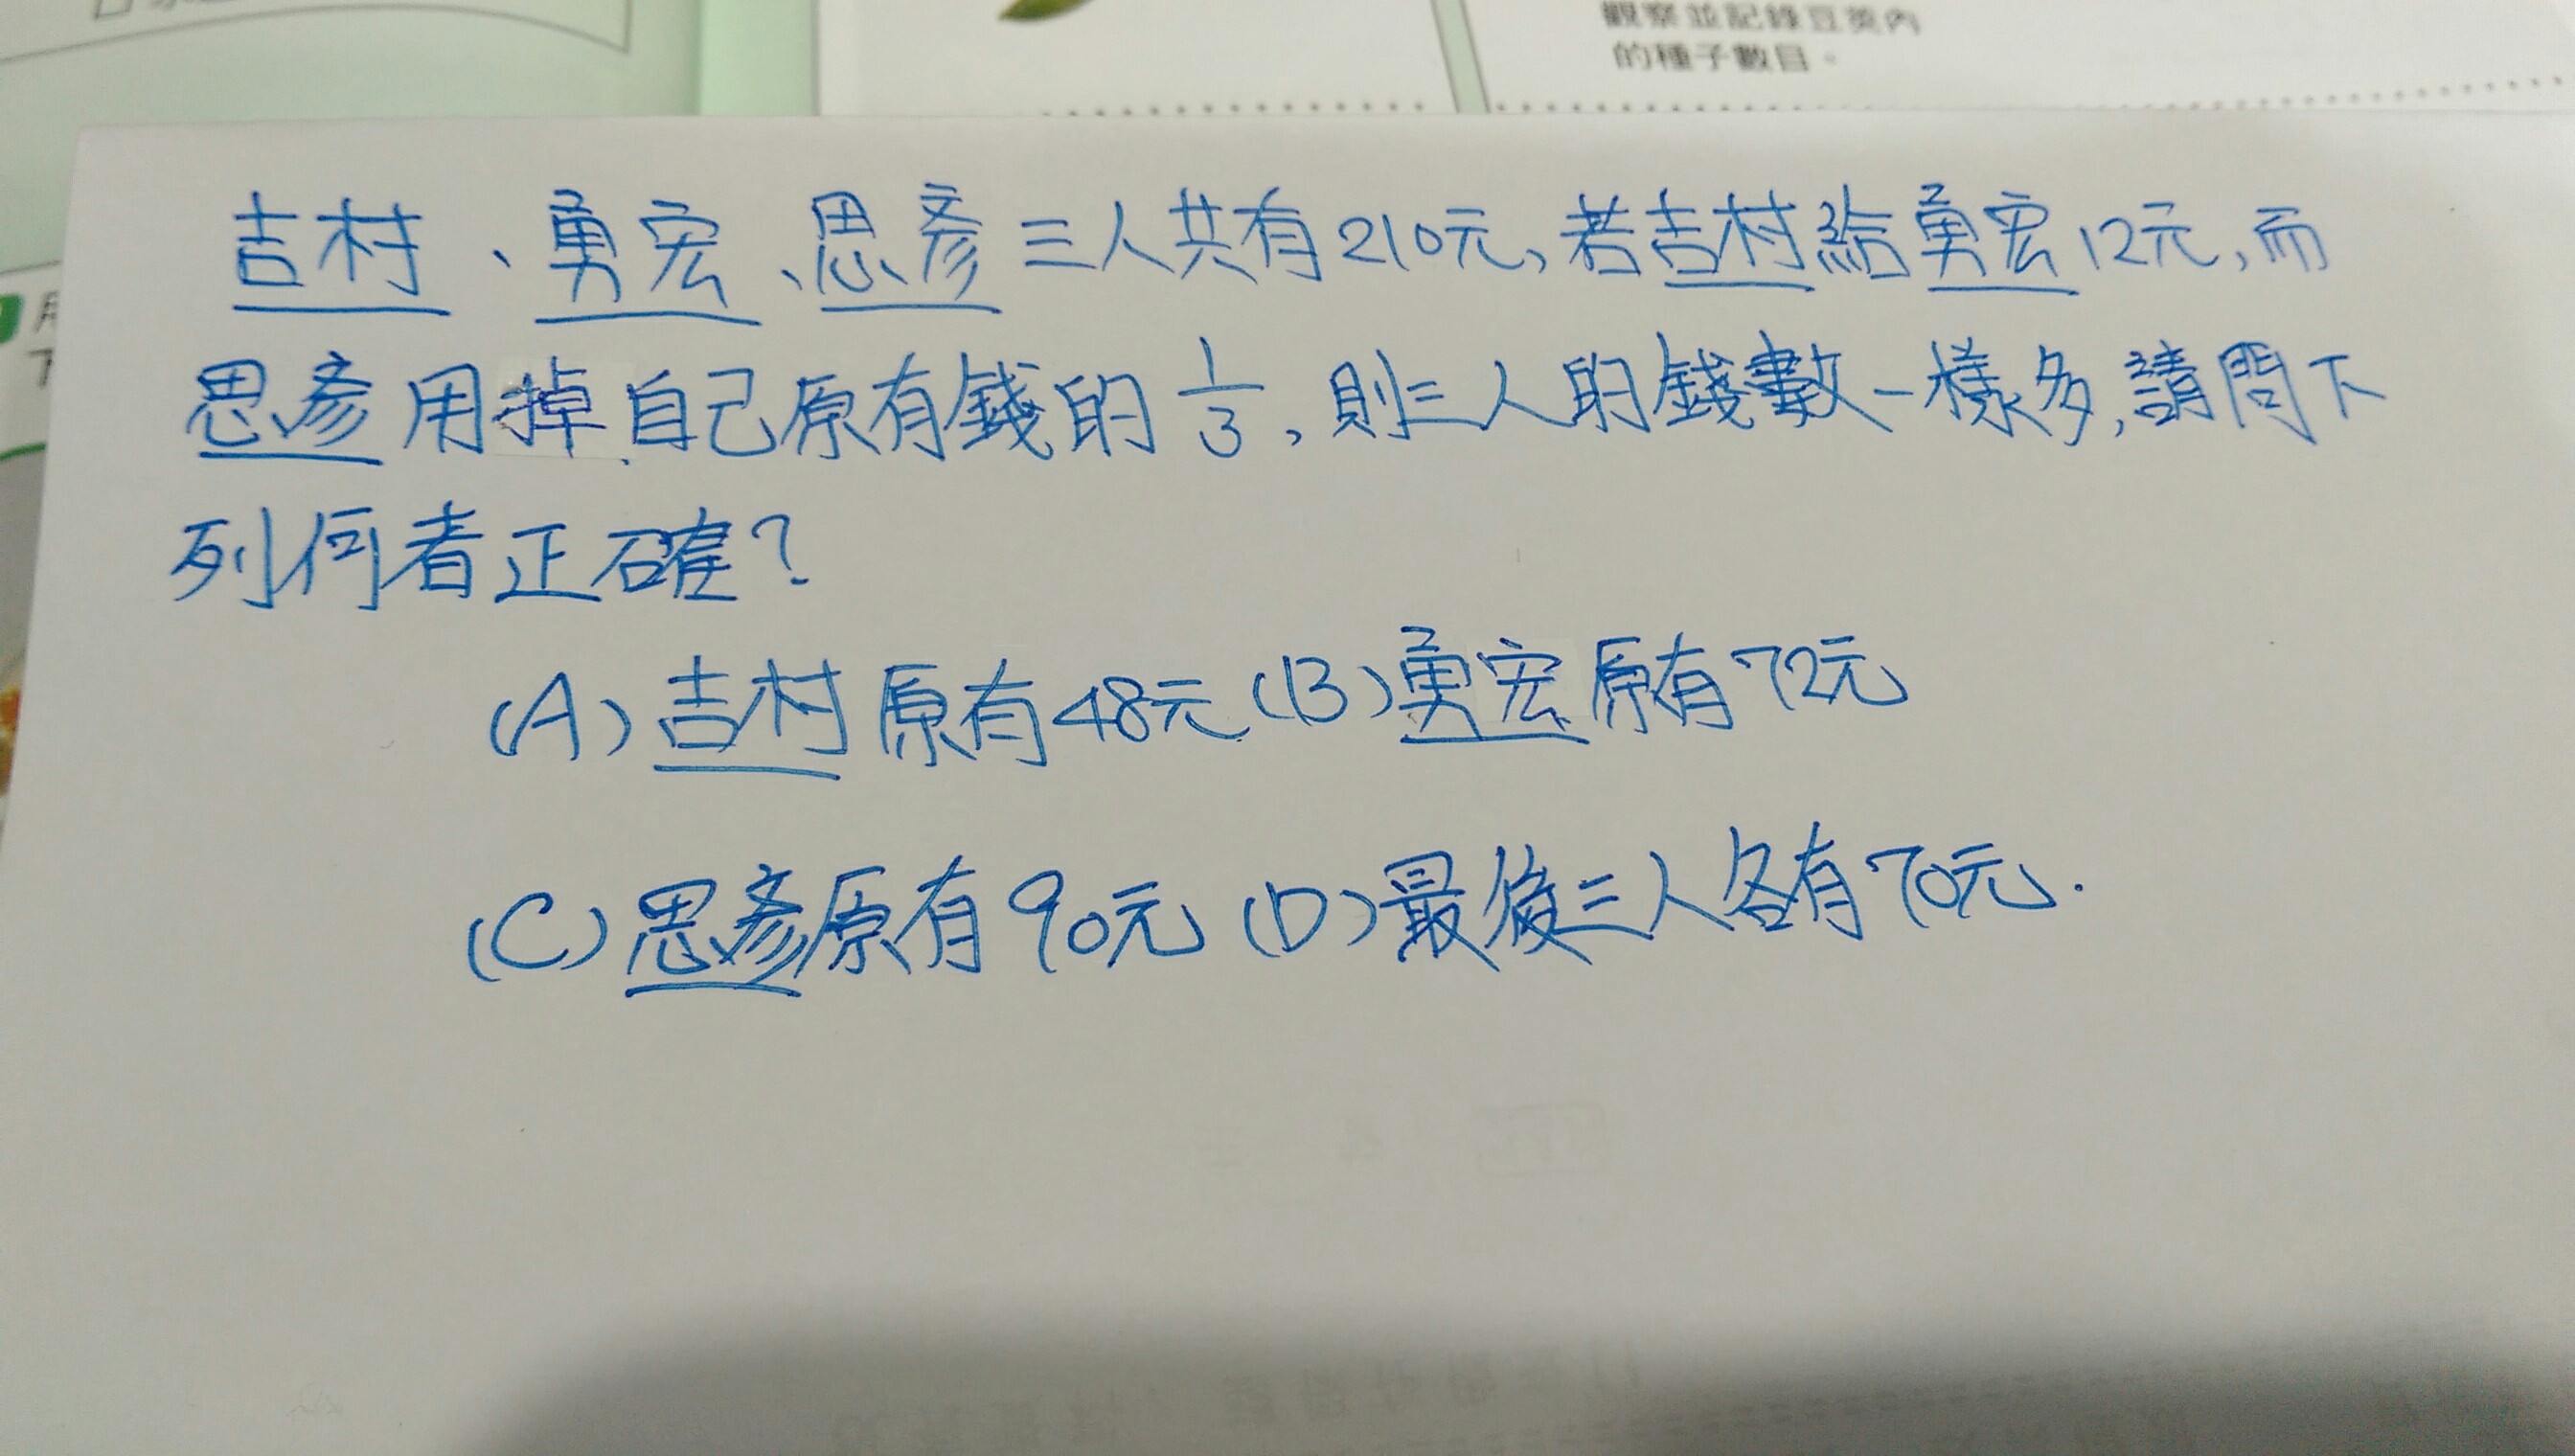 觀察並記錄豆莢內
的種子數目。
吉村、勇宏、思彥三人共有210元,若吉村給勇宏12元,而
思彥用掉自己原有錢的1/3,則三人的錢數一樣多,請問下
列何者正確?
(A)吉村原有48元(B)勇宏原有72元
(C)思彥原有90元(D)最後三人各有70元.